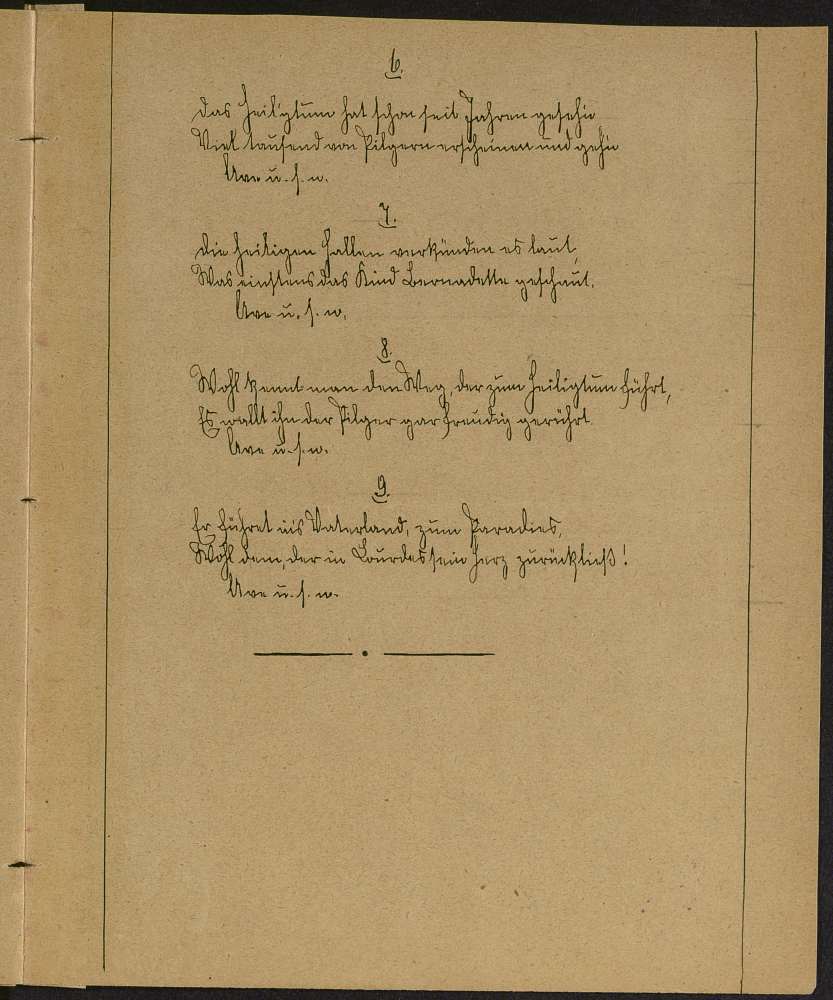 6.
Das Heil'gtum hat schon seit Jahren gesehn
Viel tausend von Pilgern erscheinen und gehn
Ave u. s. w.
7.
Die heiligen Hallen verkünden es laut,
Was einstens das Kind Bernadette geschaut.
Ave u. s. w.
8.
Wohl kennt man den Weg, der zum Heiligtum führt,
Es wallt ihn der Pilger gar freudig gerührt.
Ave u. s. w.
9.
Er führet ins Vaterland, zum Paradies,
Wohl dem, der in Lourdes sein Herz zurückließ!
Ave u. s. w.